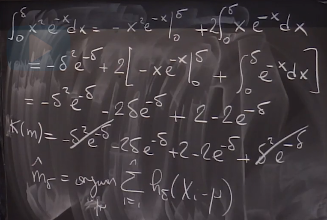 ∫₀^δ x²e^{-x}dx = -x²e^{-x}|₀^δ + 2∫₀^δ xe^{-x}dx
= -δ²e^{-δ} + 2[-xe^{-x}|₀^δ + ∫₀^δ e^{-x}dx]
= -δ²e^{-δ} - 2δe^{-δ} + 2 - 2e^{-δ}
K(m) = -δ²e^{-δ} - 2δe^{-δ} + 2 - 2e^{-δ} + δ²e^{-δ}
m̂_δ = Σ_{i=1}^n h_δ(X_i - μ)